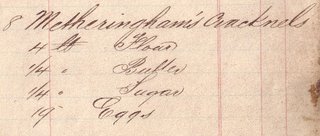 8 Metheringham's Cracknels
4 lb Flour
1/4 " Butter
1/4 " Sugar
19 Eggs